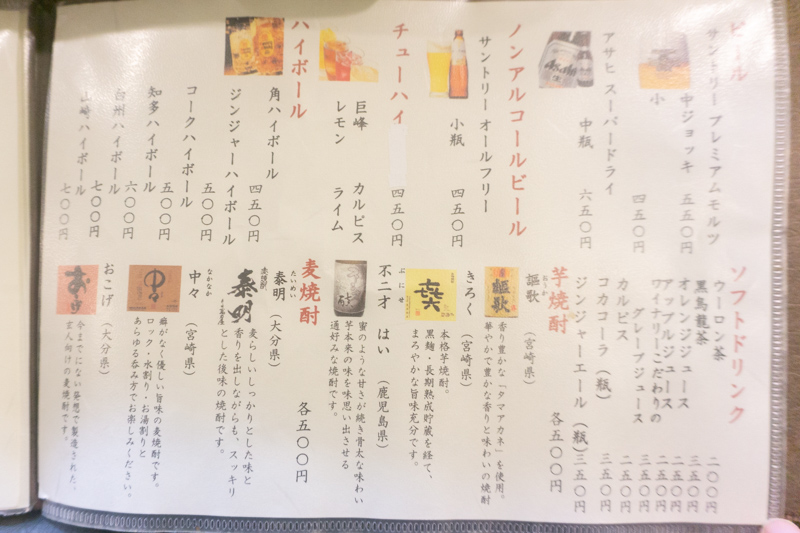 ビール
サントリー プレミアムモルツ
中ジョッキ 五五〇円
小 四五〇円
アサヒ スーパードライ
中瓶 六五〇円
ノンアルコールビール
サントリー オールフリー
小瓶 四五〇円
チューハイ 四五〇円
巨峰 カルピス
レモン ライム
ハイボール
角ハイボール 四五〇円
ジンジャーハイボール 五〇〇円
コークハイボール 五〇〇円
知多ハイボール 六〇〇円
白州ハイボール 七〇〇円
山崎ハイボール 七〇〇円
ソフトドリンク
ウーロン茶 二〇〇円
黒烏龍茶 三五〇円
オレンジジュース 二五〇円
アップルジュース 二五〇円
ワイナリーこだわりの
グレープジュース 三五〇円
カルピス 二五〇円
コカコーラ(瓶) 三五〇円
ジンジャーエール(瓶) 三五〇円
芋焼酎 各五〇〇円
謳歌 (宮崎県)
謳歌
香り豊かな「タマアカネ」を使用。
華やかで豊かな香りと味わいの焼酎
きろく (宮崎県)
本格芋焼酎。
黒麹・長期熟成貯蔵を経て、
まろやかな旨味充分です。
ぶにせ
不二才 はい (鹿児島県)
蜜のような甘さが続き骨太な味わい
芋本来の味を味思い出させる
通好みな焼酎です。
麦焼酎 各五〇〇円
たいめい
泰明 (大分県)
泰明
麦らしいしっかりとした味と
香りを出しながらも、スッキリ
とした後味の焼酎です。
なかなか
中々 (宮崎県)
中々
癖がなく優しい旨味の麦焼酎です。
ロック・水割り・お湯割りと
あらゆる呑み方でお楽しみください。
おこげ (大分県)
おこげ
今までにない発想で製造された、
玄人向けの麦焼酎です。